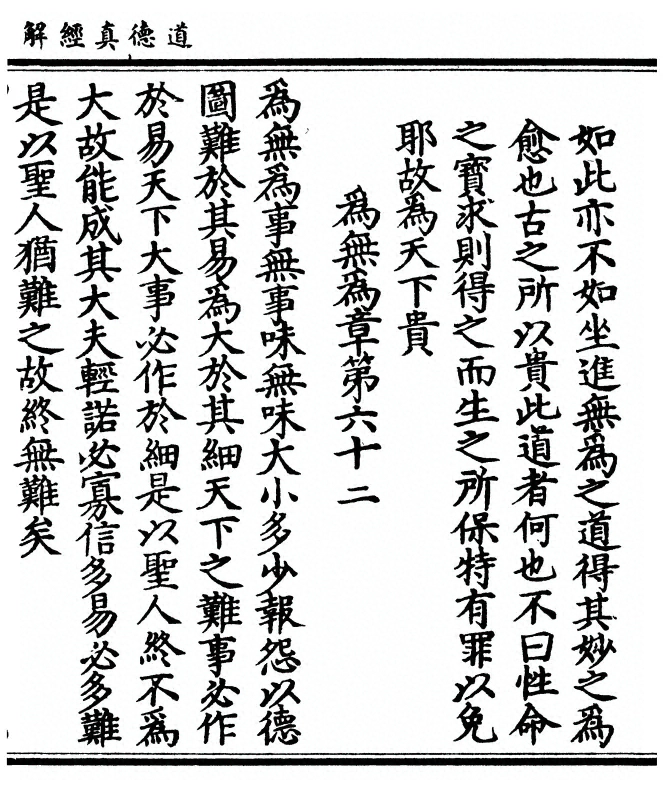 道德真經解
如此亦不如坐進無為之道得其妙之為
愈也古之所以貴此道者何也不曰性命
之寶求則得之而生之所保特有罪以免
耶故為天下貴
為無為章第六十二
為無為事無事味無味大小多少報怨以德
圖難於其易為大於其細天下之難事必作
於易天下大事必作於細是以聖人終不為
大故能成其大夫輕諾必寡信多易必多難
是以聖人猶難之故終無難矣